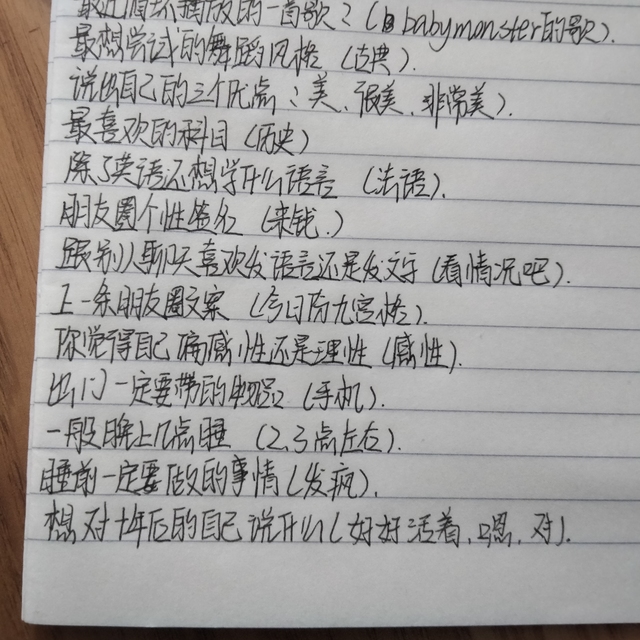 最近循环播放的一首歌？（babymonster的歌）.
最想尝试的舞蹈风格（古典）.
说出自己的三个优点：美、很美、非常美）.
最喜欢的科目（历史）
除了英语还想学什么语言（法语）.
朋友圈个性签名（来钱.）
跟别人聊天喜欢发语言还是发文字（看情况吧）.
上一条朋友圈文案（今日份九宫格）.
你觉得自己偏感性还是理性（感性）.
出门一定要带的物品（手机）.
一般晚上几点睡（2.3点左右）.
睡前一定要做的事情（发疯）.
想对十年后的自己说什么（好好活着，嗯，对）.